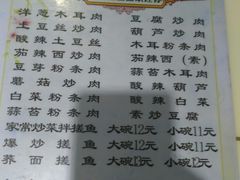 洋葱木耳肉 豆腐炒肉
土豆丝炒肉 葫芦炒肉
酸辣土豆丝 木耳粉条肉
酸辣西炒肉 茄辣西(素)
豆芽粉条肉 蒜苔木耳肉
蘑菇炒肉 白菜炒肉
白菜粉条肉 酸辣白菜
蒜苔炒肉 素炒豆腐
家常炒菜拌搓鱼 大碗12元 小碗11元
爆炒搓鱼 大碗12元 小碗11元
荞面搓鱼 大碗13元 小碗12元